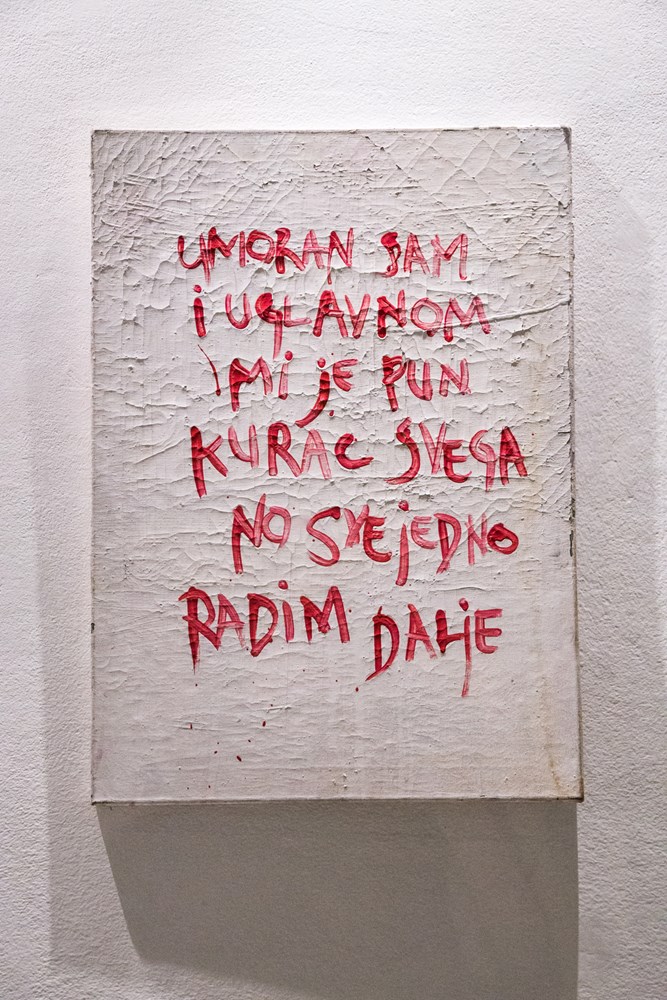 UMORAN SAM
i UGLAVNOM
Mi jE PUN
KURAC SVEGA
NO SVEjEDNO
RADiM DALjE